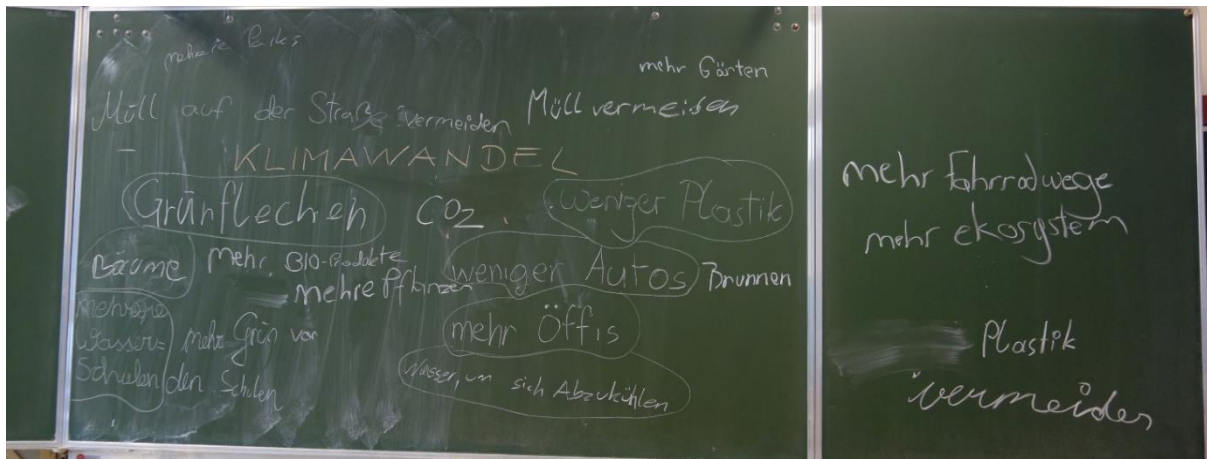 mehrere Parks
mehr Gärten
Müll auf der Straße vermeiden
Müll vermeiden
KLIMAWANDEL
Grünflechen
CO2
weniger Plastik
Bäume
mehr BIO-Produkte
mehre Pflanzen
weniger Autos
Brunnen
mehrere
Wasser=
Schulen
mehr Grün vor
den Schulen
mehr Öffis
Wasser, um sich Abzukühlen
mehr Fahrradwege
mehr ekosystem
Plastik
vermeiden